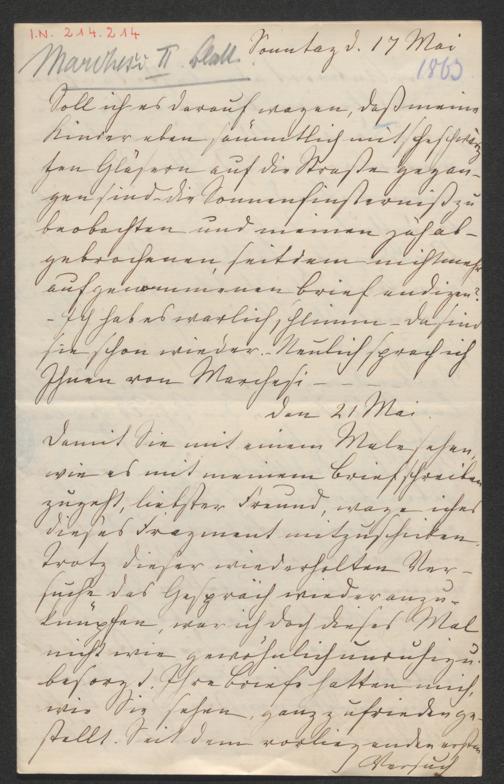 I.N. 214.214
Marchesi II. Blatt.
Sonntag d. 17 Mai
1863
Soll ich es darauf wagen, daß meine
Kinder eben sämmtlich mit geschwärz
ten Gläsern auf die Straße gegan-
gen sind die Sonnenfinsterniß zu
beobachten und meinen jäh ab-
gebrochenen, seitdem nicht mehr
aufgenommenen Brief endigen?
- Ich hab es warlich, schlimm - da sind
sie schon wieder. - Neulich sprach ich
Ihnen von Marchesi - - -
den 21 Mai.
Damit Sie mit einem Male sehen,
wie es mit meinem Briefschreiben
zugeht, liebster Freund, wage ich es
dieses Fragment mitzuschicken.
Trotz dieser wiederholten Ver-
suche das Gespräch wieder anzu-
knüpfen, war ich doch dieses Mal
nicht wie gewöhnlich unruhig u.
besorgt. Ihre Briefe hatten mich,
wie Sie sehen, ganz zufrieden ge-
stellt. Seit dem vorliegenden ersten
Versuch